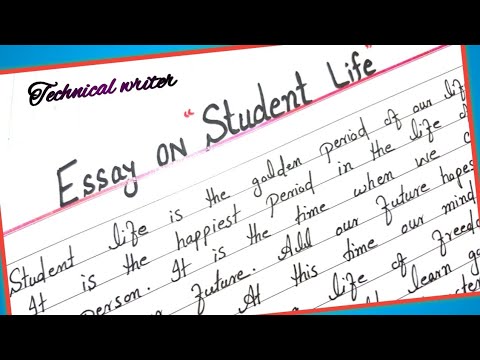 Technical writer
Essay on "Student Life"
Student life is the golden period of our lif
It is the happiest period in the life of
person. It is the time when we c
future. All our future hopes
At this time our mind
life of freedo
learn go